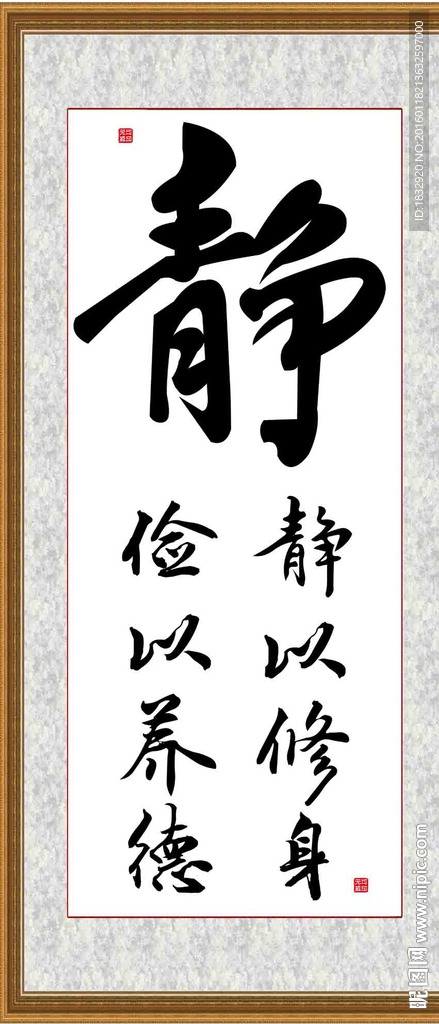 静
静以修身
俭以养德
ID:1832920 NO:20160118213632597000
昵图网 www.nipic.com